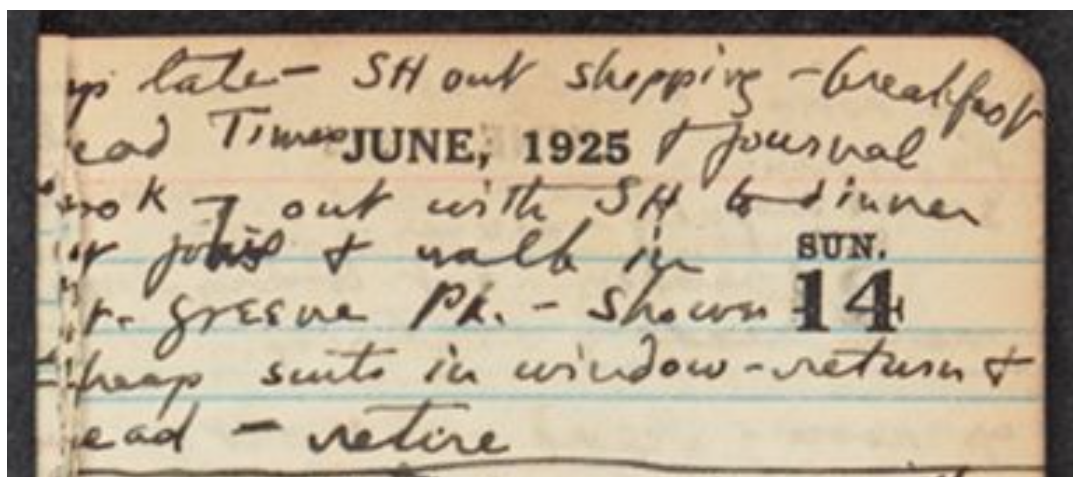 up late – SH out shopping – breakfast
read Times & Journal
JUNE, 1925
book – out with SH to dinner
at John's & walk in
SUN.
14
Ft. Greene Pk. – Shown
cheap suits in window – return &
read – retire